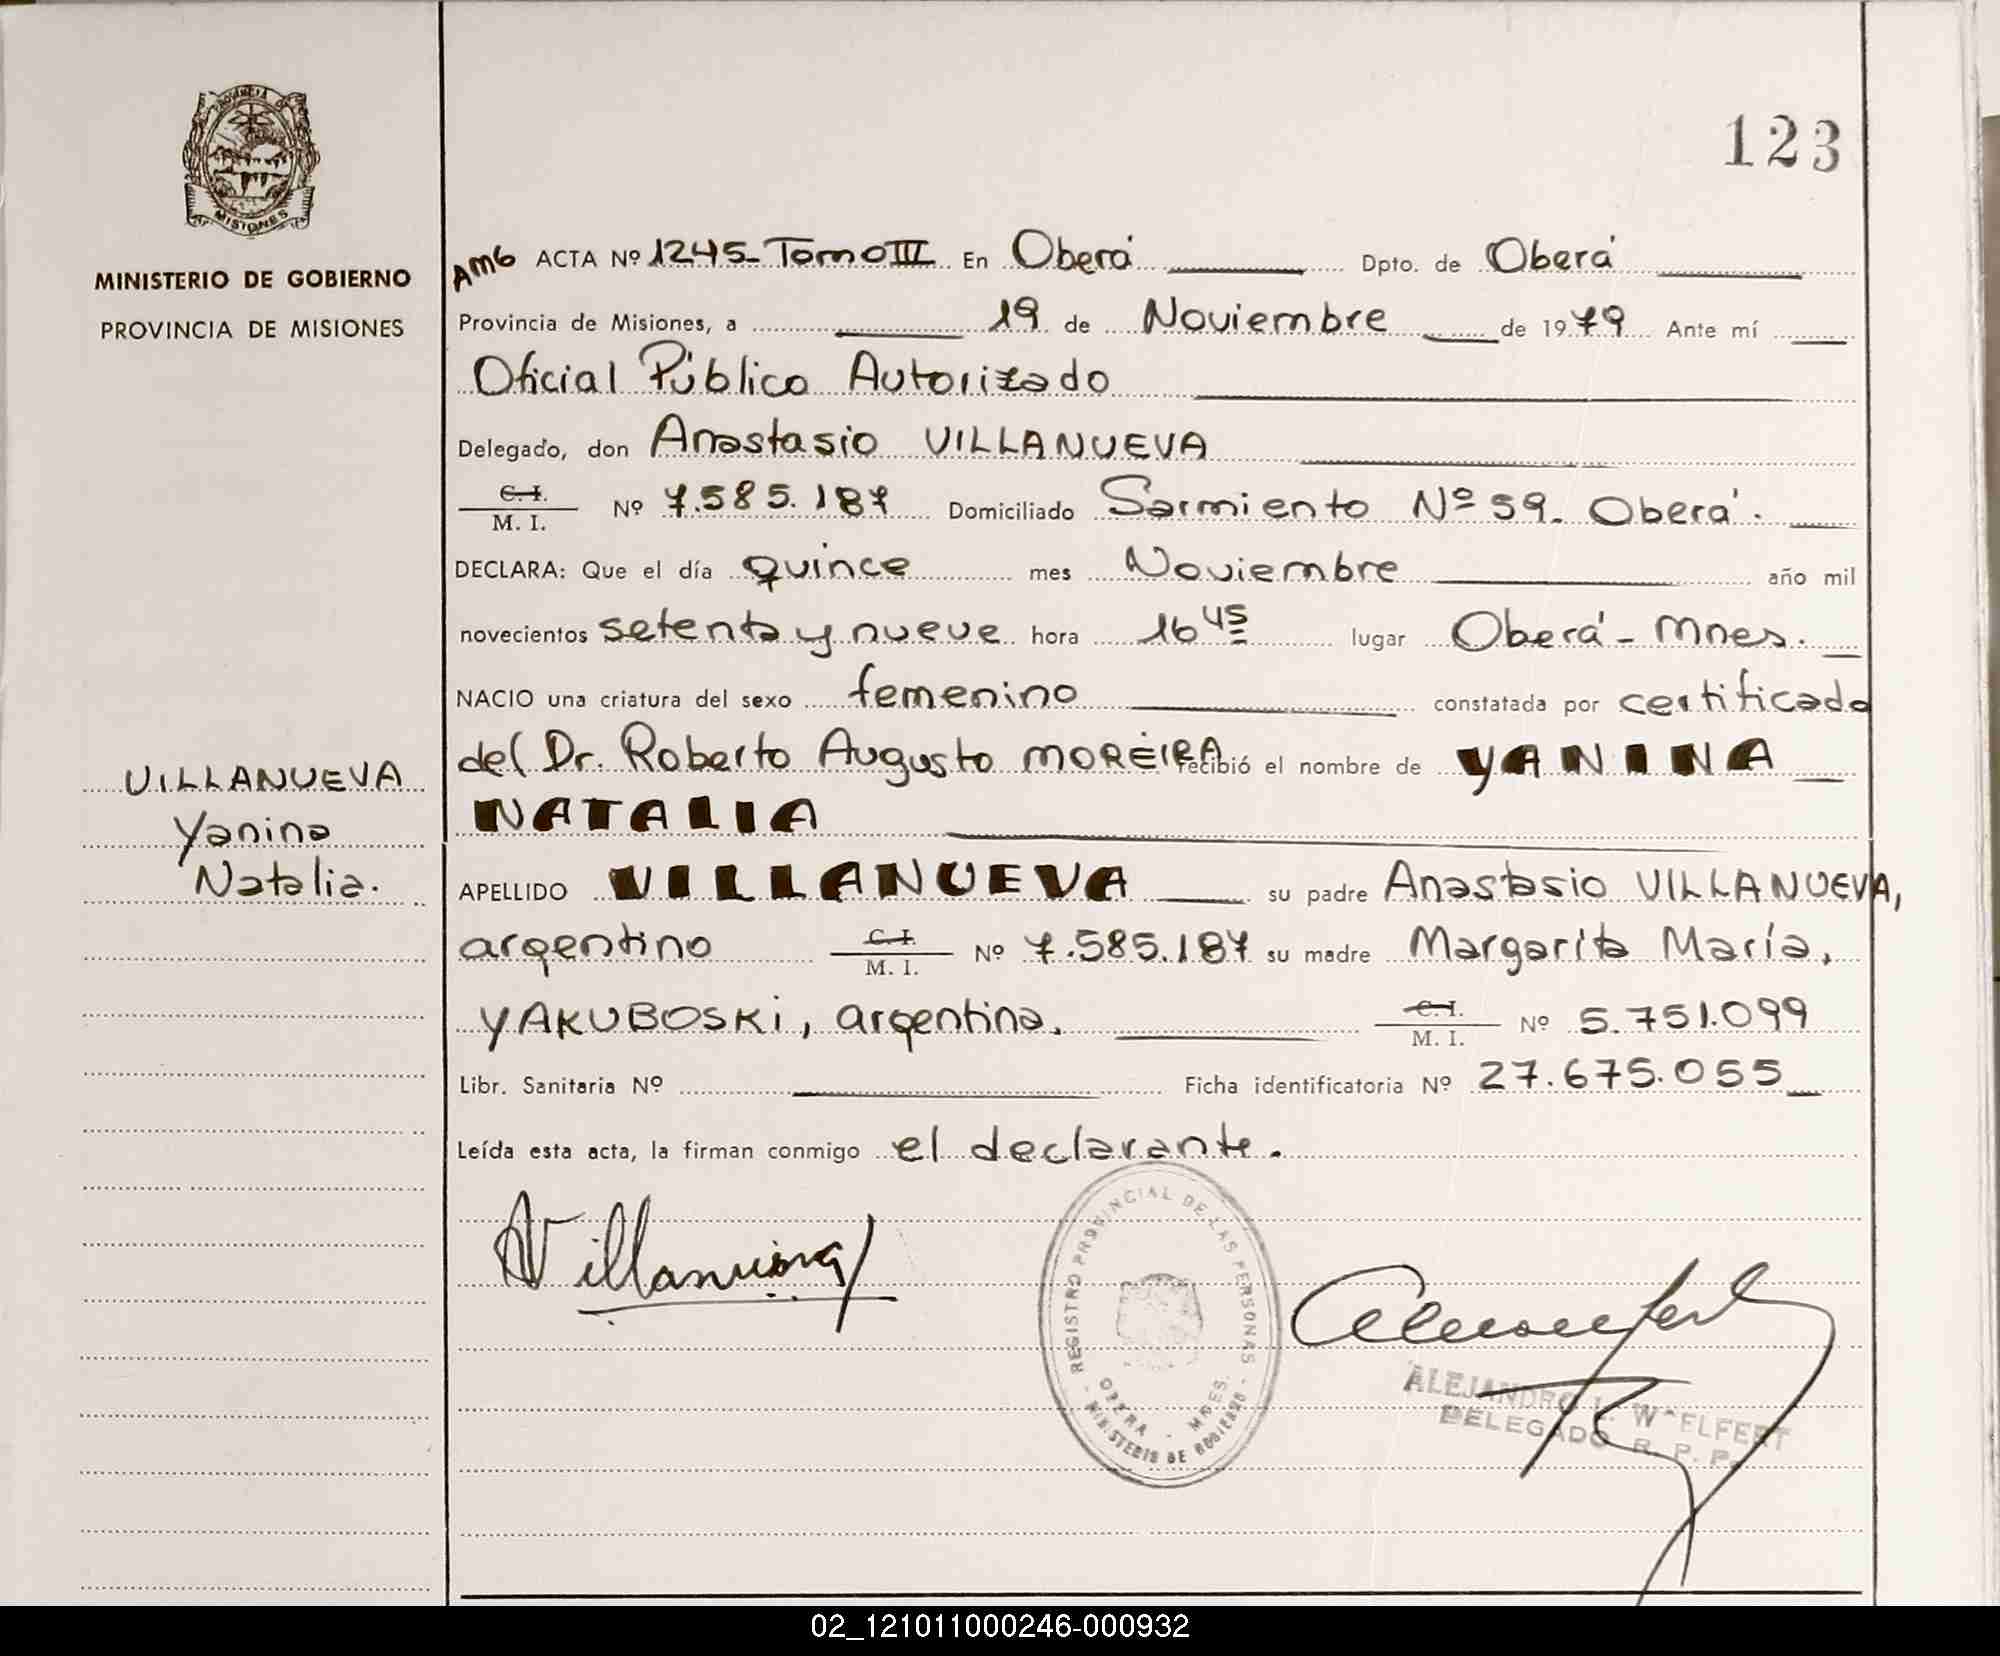 PROVINCIA DE
MISIONES
MINISTERIO DE GOBIERNO
PROVINCIA DE MISIONES
123
AMG ACTA Nº 1245 - Tomo III En Oberá Dpto. de Oberá
Provincia de Misiones, a 19 de Noviembre de 1979 Ante mí
Oficial Público Autorizado
Delegado, don Anastasio VILLANUEVA
C. I.
M. I. Nº 7.585.187 Domiciliado Sarmiento Nº 59 - Oberá.
DECLARA: Que el día quince mes Noviembre año mil
novecientos setenta y nueve hora 16 45 lugar Oberá - Mnes.
NACIO una criatura del sexo femenino constatada por certificado
del Dr. Roberto Augusto MOREIRA recibió el nombre de YANINA
NATALIA
VILLANUEVA
Yanina
Natalia.
APELLIDO VILLANUEVA su padre Anastasio VILLANUEVA,
argentino C. I.
M. I. Nº 7.585.187 su madre Margarita María,
YAKUBOSKi, argentina. C. I.
M. I. Nº 5.751.099
Libr. Sanitaria Nº Ficha identificatoria Nº 27.675.055
Leída esta acta, la firman conmigo el declarante.
AVillanueva
REGISTRO PROVINCIAL DE LAS PERSONAS
OBERA - MNES.
MINISTERIO DE GOBIERNO
ALEJANDRO L. WOELFERT
DELEGADO R. P. P.
02_121011000246-000932